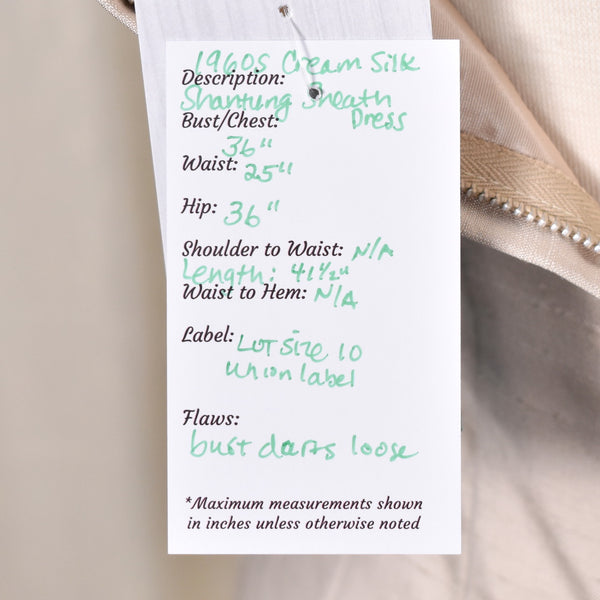 1960s Cream Silk
Description:
Shantung Sheath
Bust/Chest: Dress
36"
Waist: 25"
Hip: 36"
Shoulder to Waist: N/A
Length: 41 1/2"
Waist to Hem: N/A
Label: Lot Size 10
union label
Flaws:
bust darts loose
*Maximum measurements shown
in inches unless otherwise noted